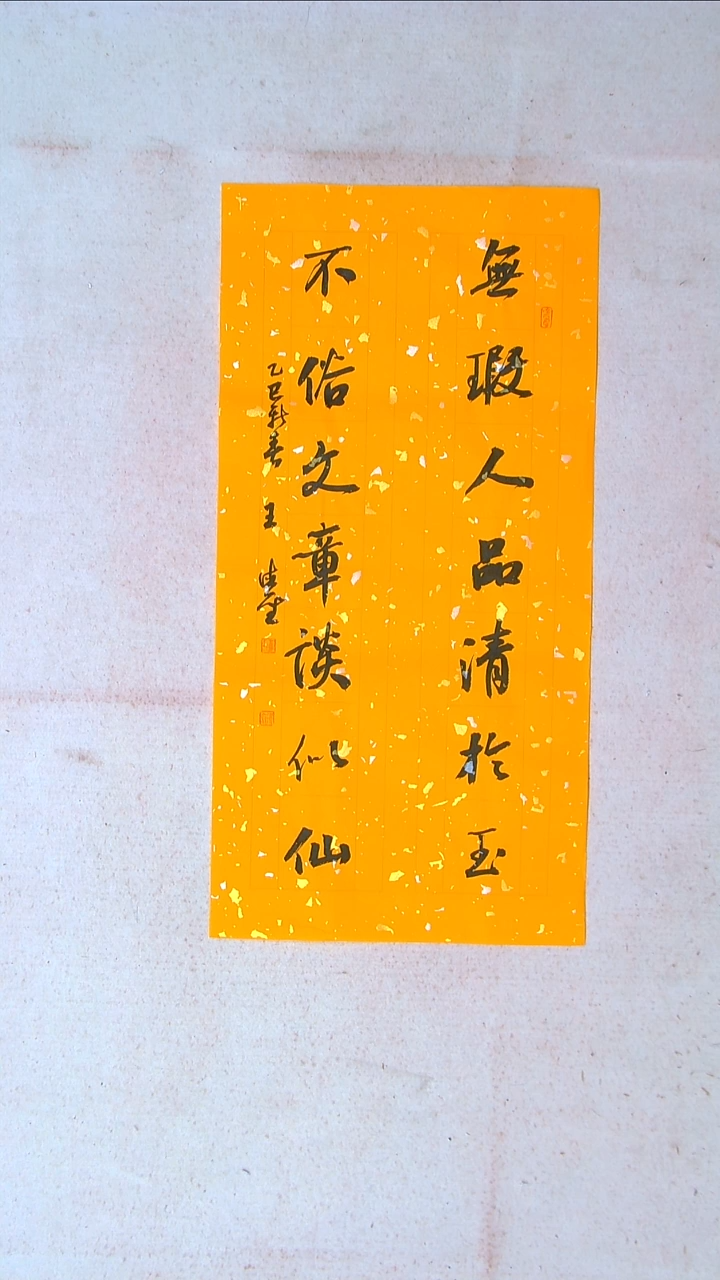 無瑕人品清於玉
不俗文章談似仙
乙巳新春 王